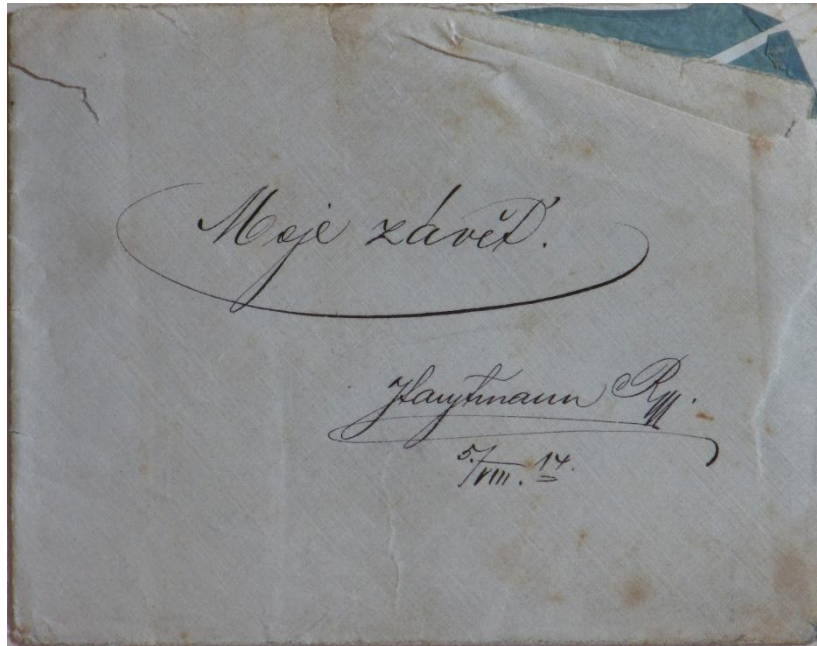 Moje závěť.
Hauptmann
5./VIII. 14.